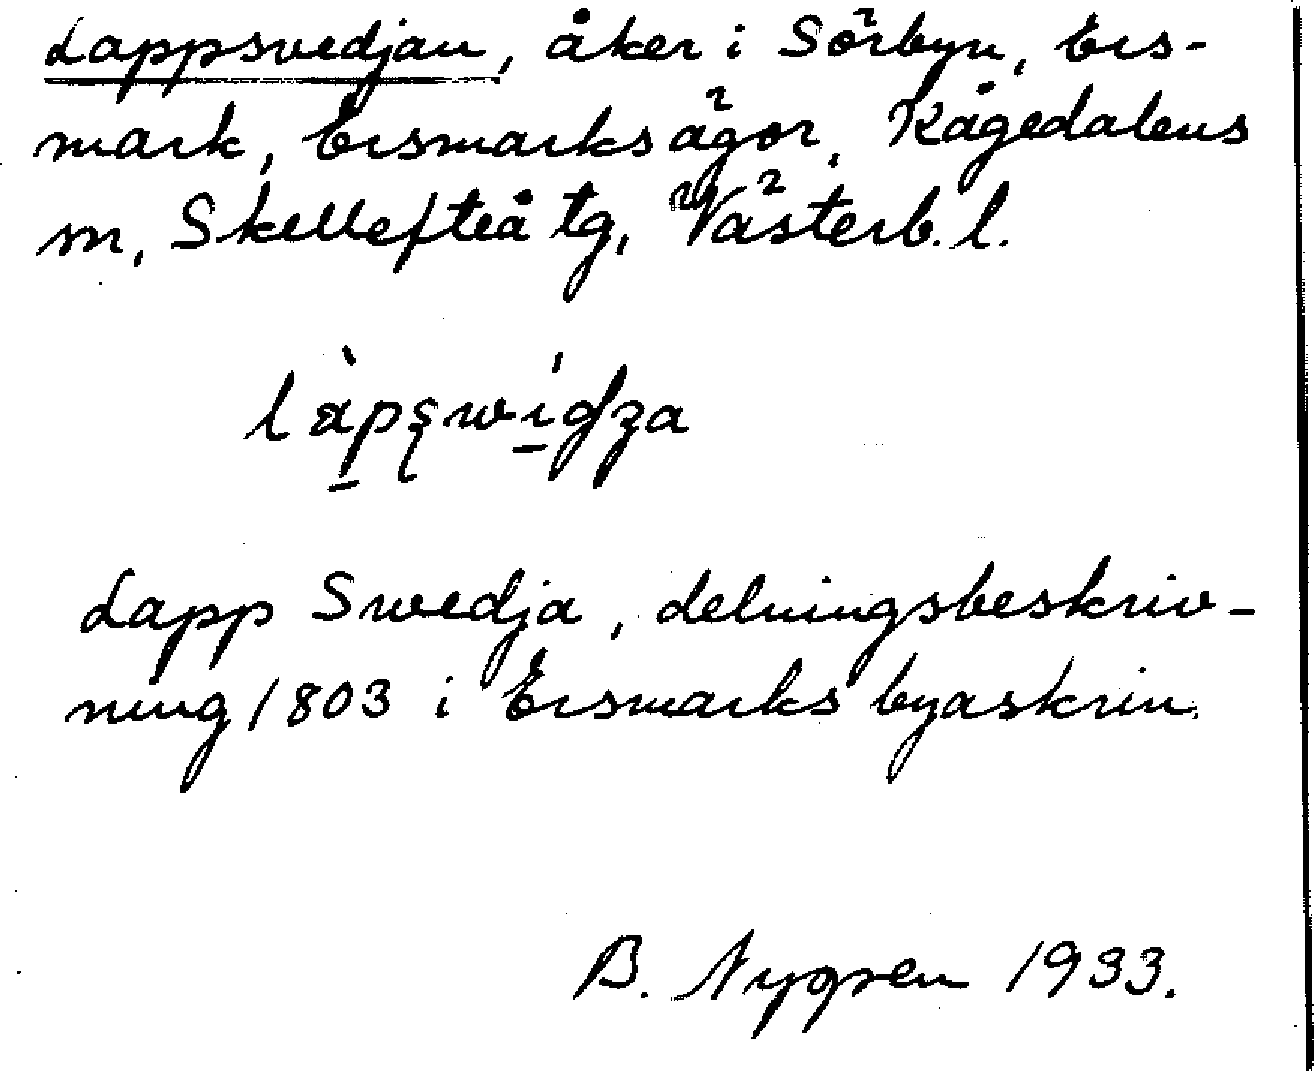 Lappsvedjan, åker i Sörbyn, Ers-
mark, Ersmarks ägor, Kågedalens
m, Skellefteå tg, Västerb. l.
Lapp Swedja, delningsbeskriv-
ning 1803 i Ersmarks byaskrin.
B. Nygren 1933.